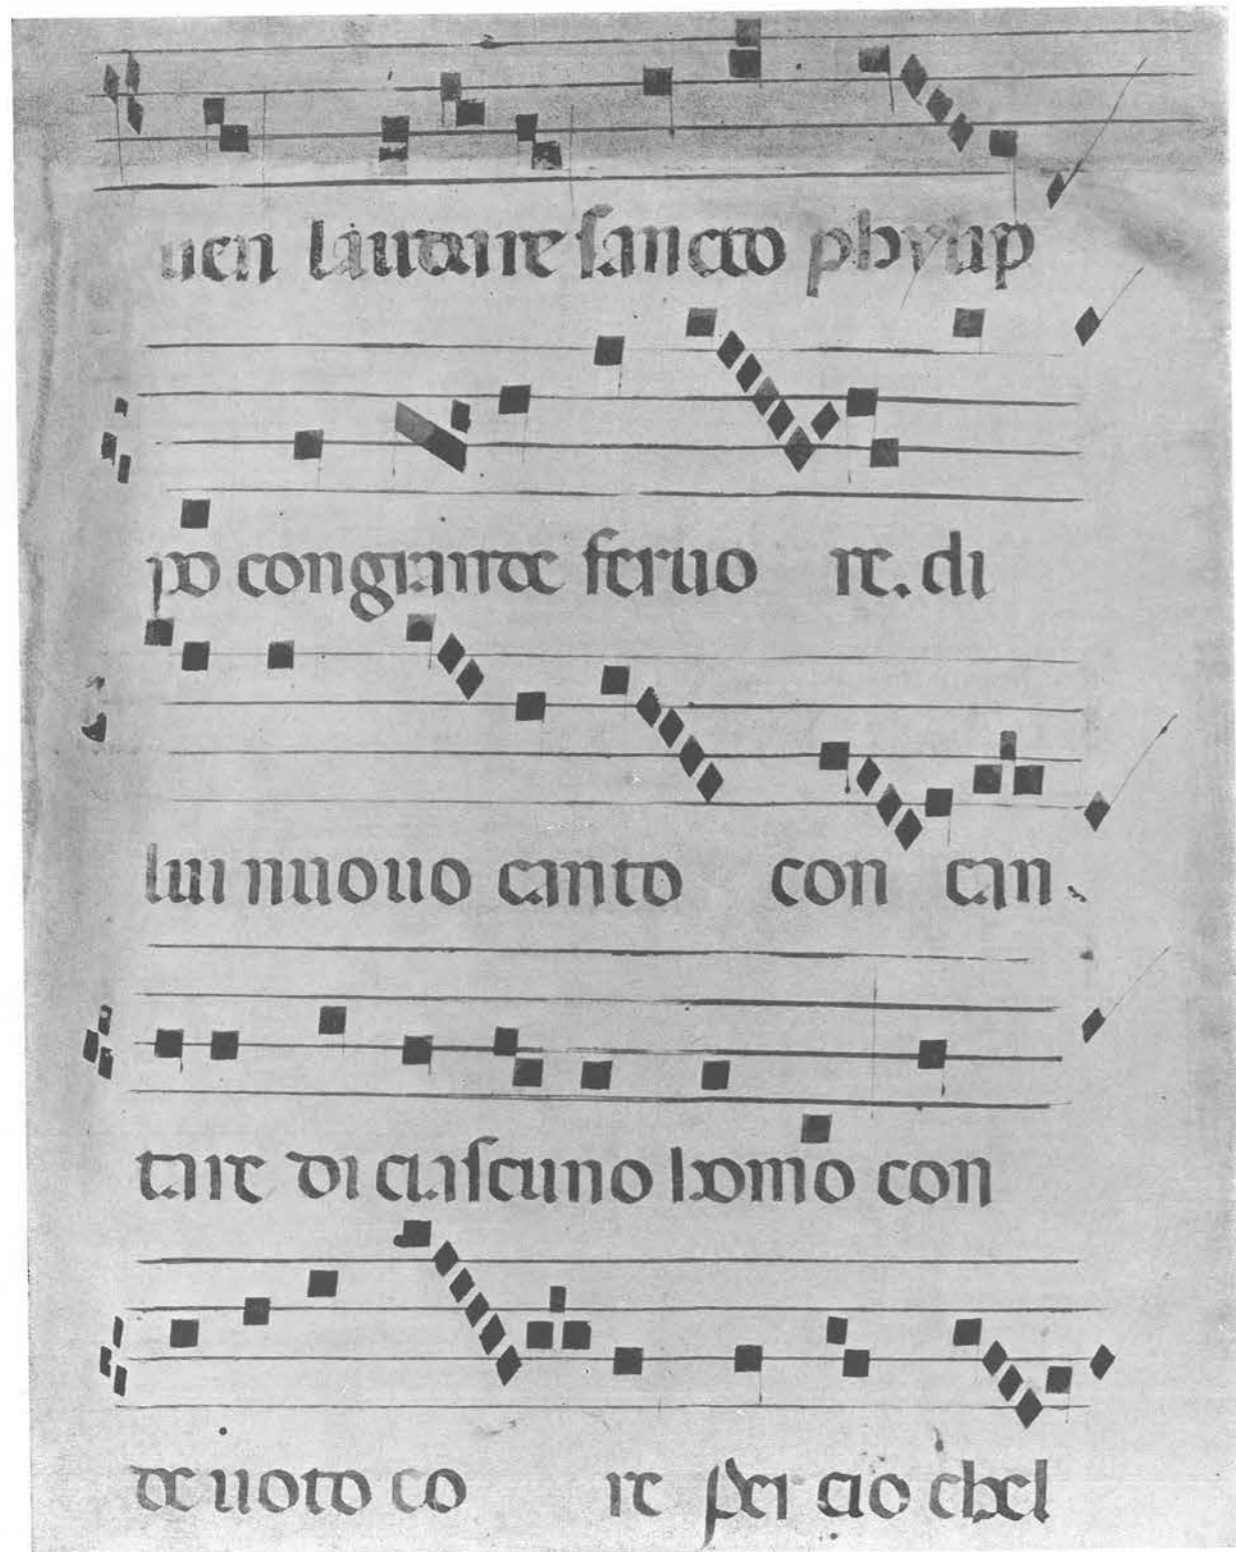 uen laudare sancto phylip
po con grande feruo re. di
lui nuouo canto con can
tare di ciascuno homo con
de uoto co re per cio chel